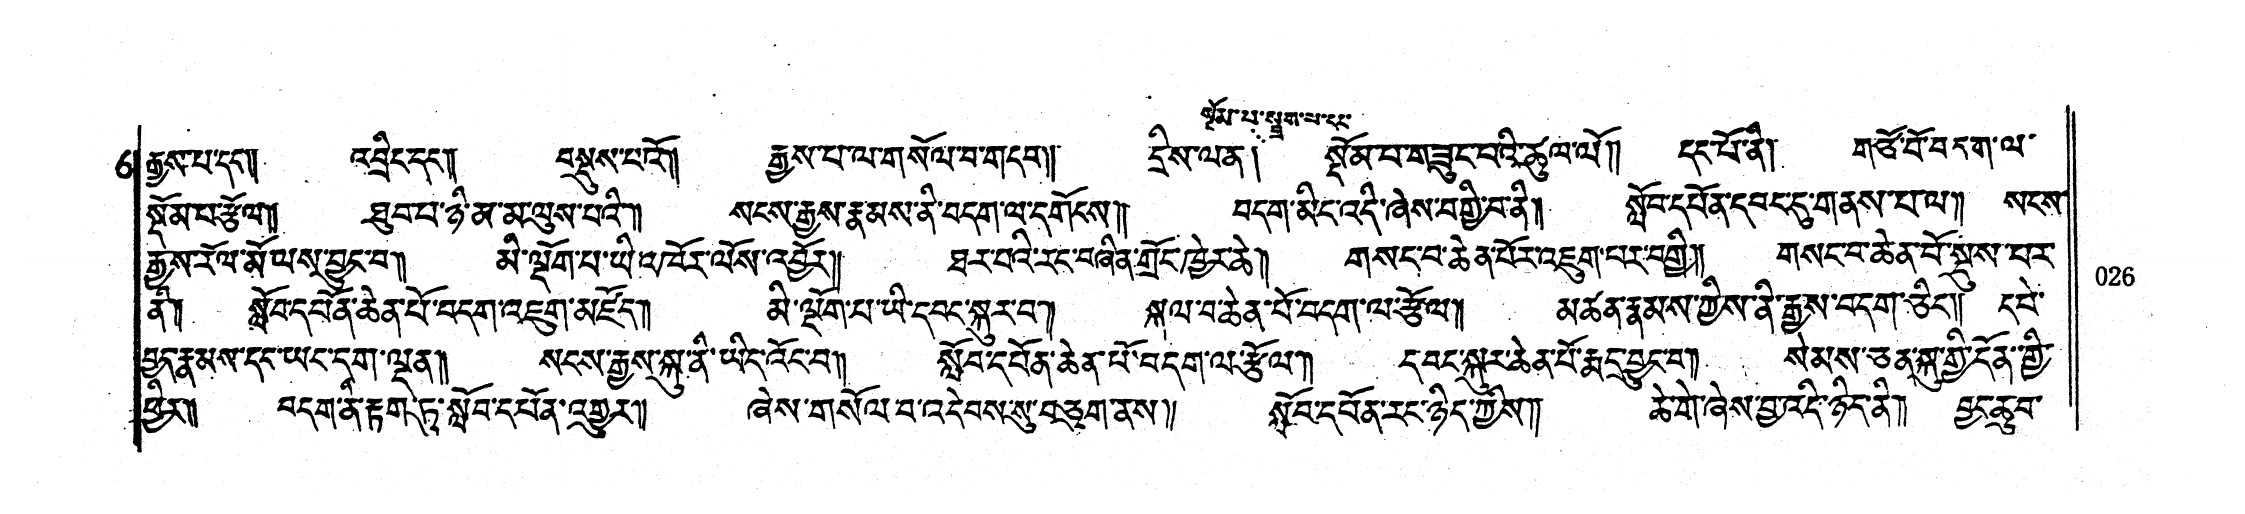 སྡོམ་པ་སྔགས་པ་དང་
6 རྒྱས་པ་དད༎ འབྲིང་དང༎ བསྡུས་པའོ༎ རྒྱས་པ་ལ་གསོལ་བ་གདབ༎ དྲིས་ལན། སྡོམ་པ་གཟུང་བའི་ཚུལ་ལོ༎ དང་པོ་ནི། གཙོ་བོ་བདག་ལ་
སྡོམ་པ་རྩོལ༎ ཐུབ་པ་ཉི་མ་མ་ལུས་པའི༎ སངས་རྒྱས་རྣམས་ནི་བདག་ལ་དགོངས༎ བདག་མིང་འདི་ཞེས་བགྱི་བ་ནི༎ སློབ་དཔོན་དབང་དུ་གནས་པ་ལ༎ སངས་
རྒྱས་རོལ་མོ་ལས་བྱུང་བ༎ མི་ལྡོག་པ་ཡི་འཁོར་ལོས་འབྱོར༎ ཐར་བའི་རང་བཞིན་གྲོང་ཁྱེར་ཆེ༎ གསང་བ་ཆེན་པོར་འཇུག་པར་བགྱི༎ གསང་བ་ཆེན་པོ་སྡུས་པར་
ནི༎ སློབ་དཔོན་ཆེན་པོ་བདག་འཇུག་མཛོད༎ མི་ལྡོག་པ་ཡི་དབང་སྐུར་བ༎ སྐལ་བ་ཆེན་པོ་བདག་ལ་རྩོལ༎ མཚན་རྣམས་ཀྱིས་ནི་རྒྱས་བདག་ཅིང༎ དཔེ་
བྱད་རྣམས་དང་ཡང་དག་ལྡན༎ སངས་རྒྱས་སྐུ་ནི་ཡིང་འོང་བ༎ སློབ་དཔོན་ཆེན་པོ་བདག་ལ་རྩོལ༎ དབང་སྐུར་ཆེན་པོ་རྨད་བྱུང་བ༎ སེམས་ཅན་སྐུ་གྱི་དོན་གྱི་
ཕྱིར༎ བདག་ནི་རྟག་ཏུ་སློབ་དཔོན་འགྱུར༎ ཞེས་གསོལ་བ་འདེབས་སུ་བཅུག་ནས༎ སློབ་དཔོན་རང་ཉིད་ཀྱིས༎ ཆེ་གེ་ཞེས་བྱ་འདི་ཉིད་ནི༎ བྱང་ཆུབ་
026